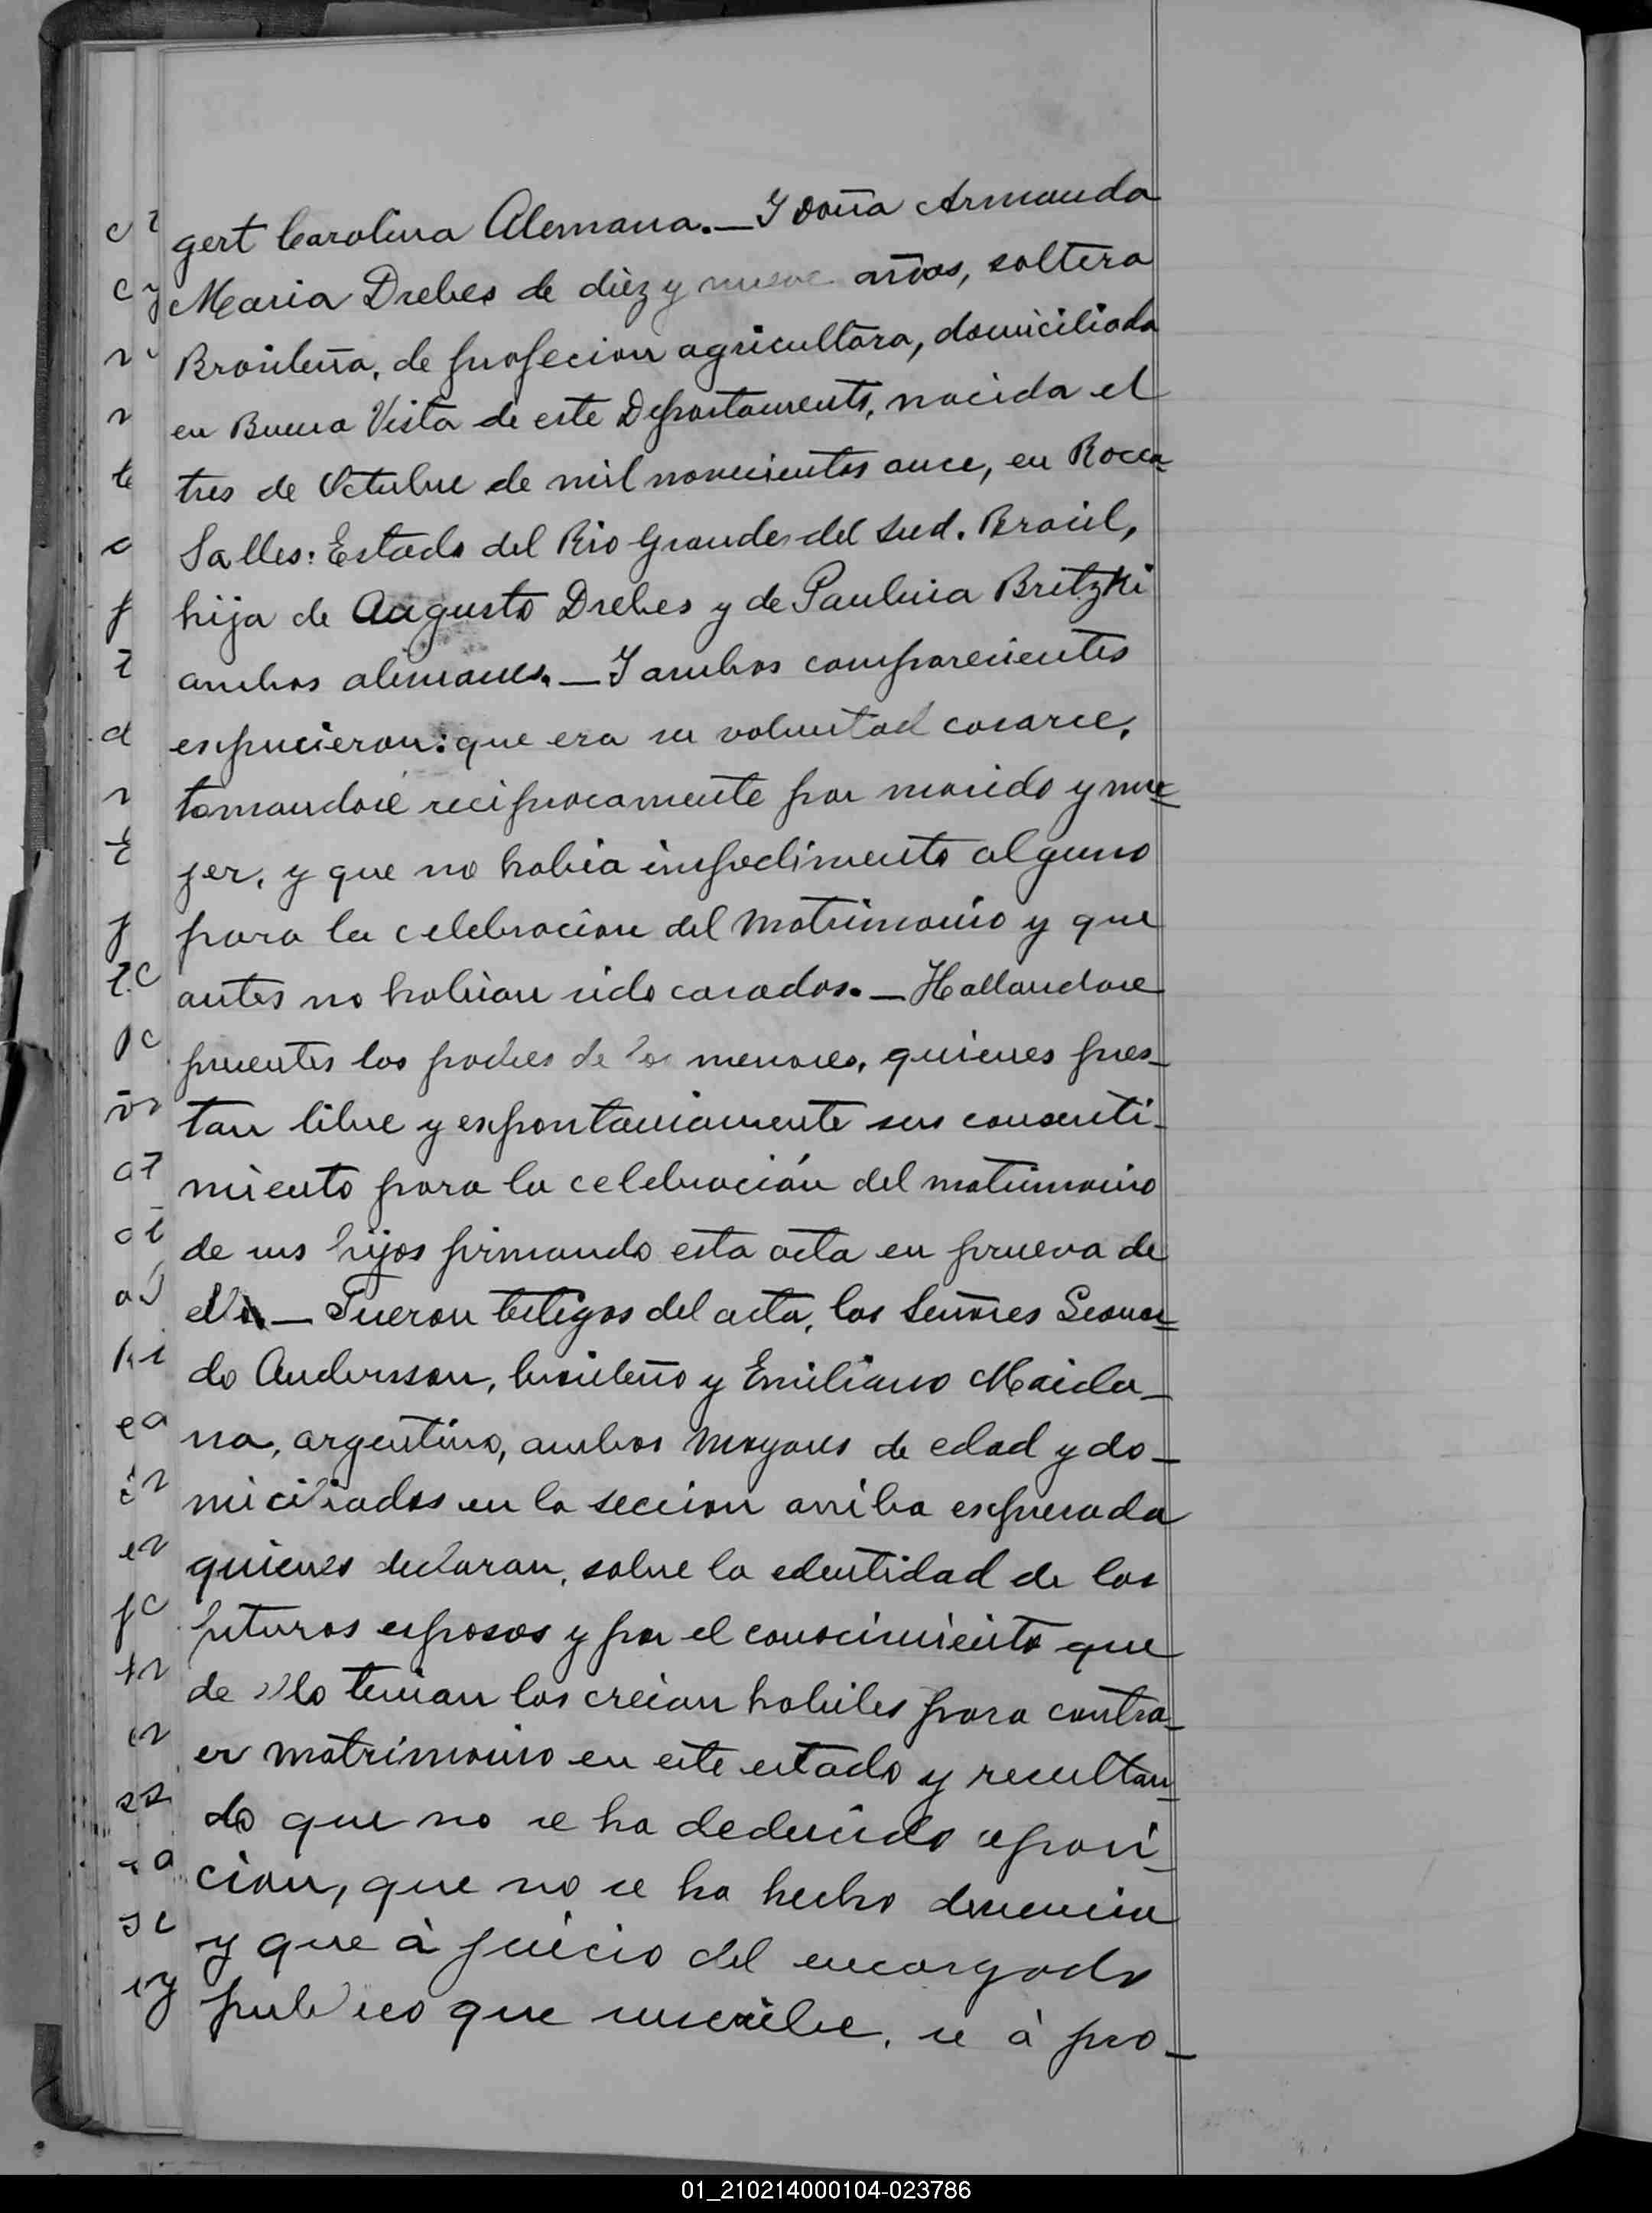 gert Carolina Alemana.— Y doña Armanda
Maria Drebes de diez y nueve años, soltera
Brasileña, de profecion agricultora, domiciliada
en Buena Vista de este Departamento, nacida el
tres de Octubre de mil novecientos once, en Rocca
Salles: Estado del Rio Grande del Sud. Brasil,
hija de Augusto Drebes y de Paulina Britzki
ambos alemanes.— Y ambos comparecientes
espucieron: que era su voluntad casarce,
tomandose reciprocamente por marido y mu=
jer, y que no habia impedimento alguno
para la celebracion del matrimonio y que
antes no habian sido casados.— Hallandose
precentes los padres de los menores, quienes pres-
tan libre y espontaniamente sus consenti-
miento para la celebración del matrimonio
de sus hijos firmando esta acta en prueva de
ello.— Fueron testigos del acta, los Señores Leonar=
do Andersson, brasileño y Emiliano Maida-
na, argentino, ambos mayores de edad y do-
miciliados en la seccion arriba espresada
quienes declaran, sobre la edentidad de los
futuros esposos y por el conocimiento que
de ello tenian los creian habiles para contra-
er matrimonio en este estado y recultan-
do que no se ha deducido oposi-
cion, que no se ha hecho denuncia
y que à juicio del encargado
publico que suscribe, se à pro-
01_210214000104-023786